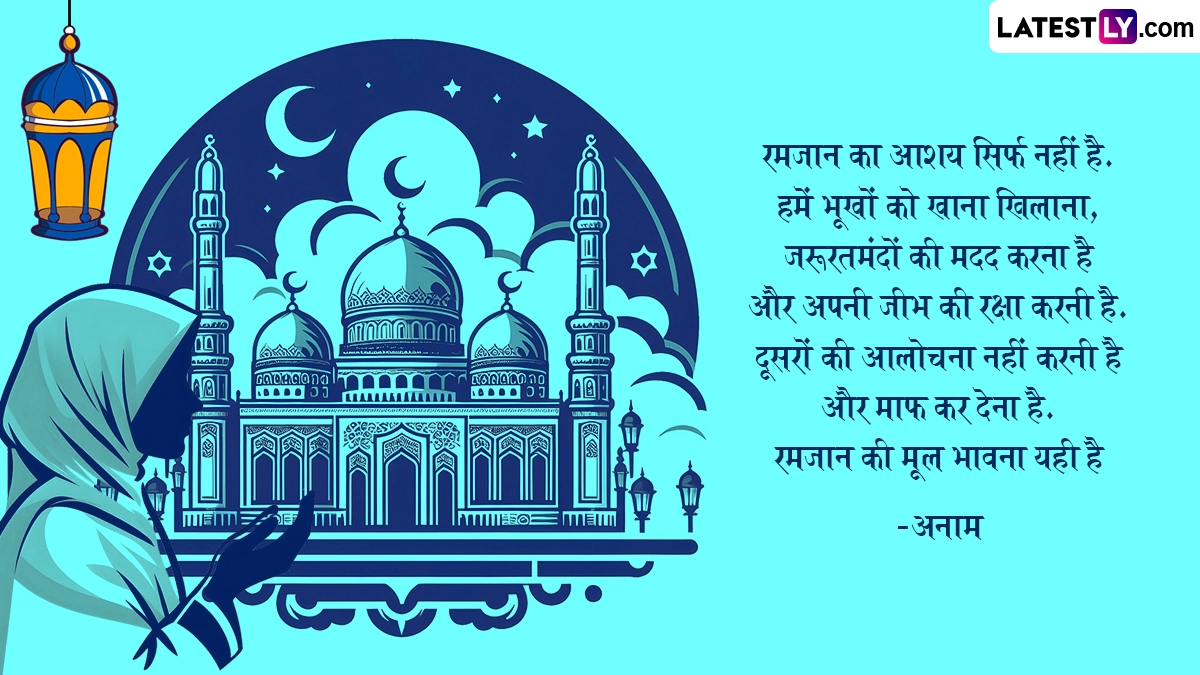 LATESTLY.com
रमजान का आशय सिर्फ नहीं है.
हमें भूखों को खाना खिलाना,
जरूरतमंदों की मदद करना है
और अपनी जीभ की रक्षा करनी है.
दूसरों की आलोचना नहीं करनी है
और माफ कर देना है.
रमजान की मूल भावना यही है
-अनाम